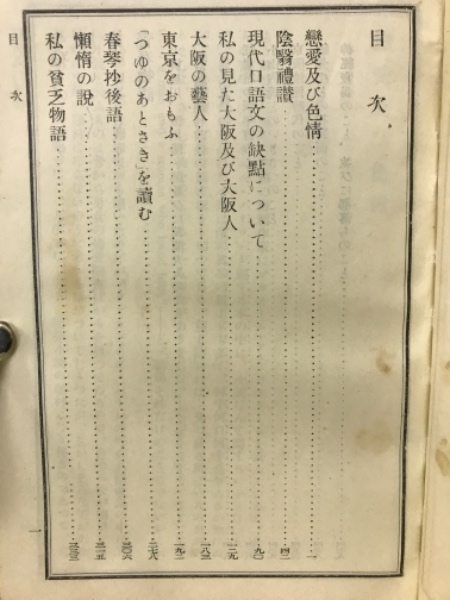 目次
戀愛及び色情……一
陰翳禮讃……四二
現代口語文の缺點について……九〇
私の見た大阪及び大阪人……一二九
大阪の藝人……一八二
東京をおもふ……一九二
「つゆのあとさき」を讀む……二七八
春琴抄後語……三〇六
懶惰の說……三一五
私の貧乏物語……三三三
目次
一